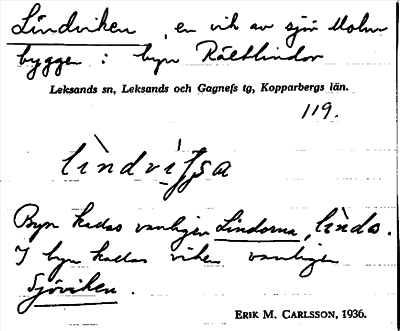 Lindviken, en vik av sjön Molnbyggen i byn Rältlindor
Leksands sn, Leksands och Gagnefs tg, Kopparbergs län.
119.
Byn kallas vanligen Lindorna, lìndo.
I byn kallas viken vanligen
Sjöviken.
ERIK M. CARLSSON, 1936.